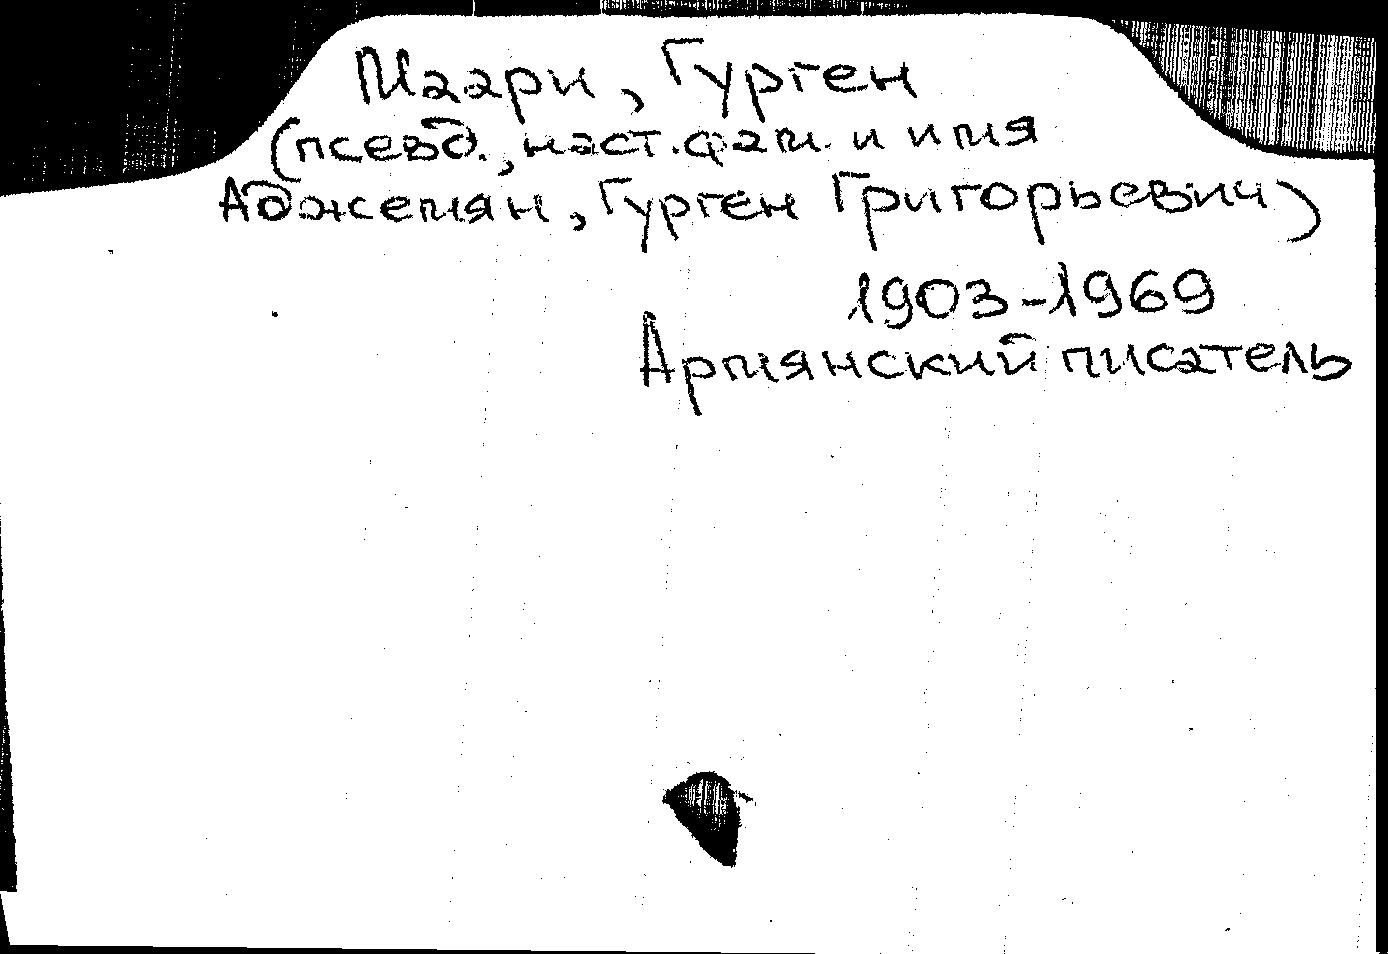 Маари, Гурген
(псевд., наст. фам. и имя
Аджемян, Гурген Григорьевич)
1903-1969
Армянский писатель